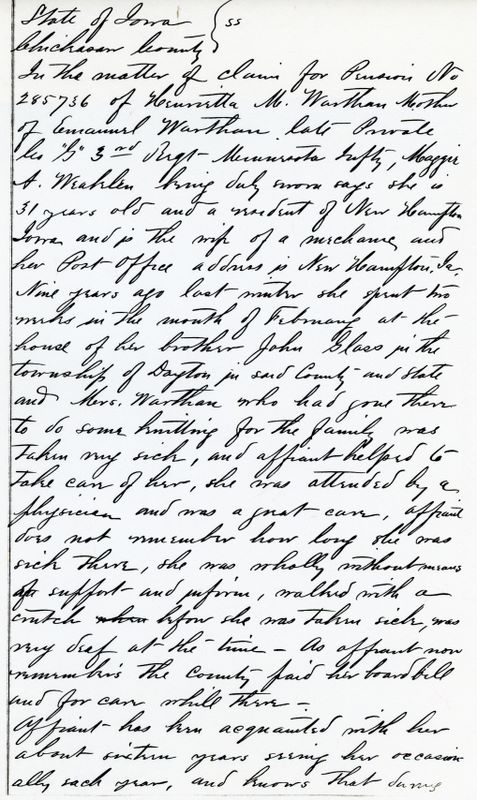 State of Iowa } ss
Chickasaw County
In the matter of claim for Pension No
285736 of Henrietta M. Warthan Mother
of Emanuel Warthan late Private
Co "G" 3rd Regt Minnesota Infty, Maggie
A. being duly sworn says she is
31 years old and a resident of New Hampton
Iowa and is the wife of a mechanic and
her Post Office address is New Hampton, Ia.
Nine years ago last winter she spent two
weeks in the month of February at the
house of her brother John Glass in the
township of Dayton in said County and State
and Mrs. Warthan who had gone there
to do some knitting for the family was
taken very sick, and affiant helped to
take care of her, she was attended by a
physician and was a great care, affiant
does not remember how long she was
sick there, she was wholly without means
of support and infirm, walked with a
crutch when before she was taken sick, was
very deaf at the time - As affiant now
remembers the County paid her board bill
and for care while there -
Affiant has been acquainted with her
about sixteen years seeing her occasion-
ally each year, and knows that during